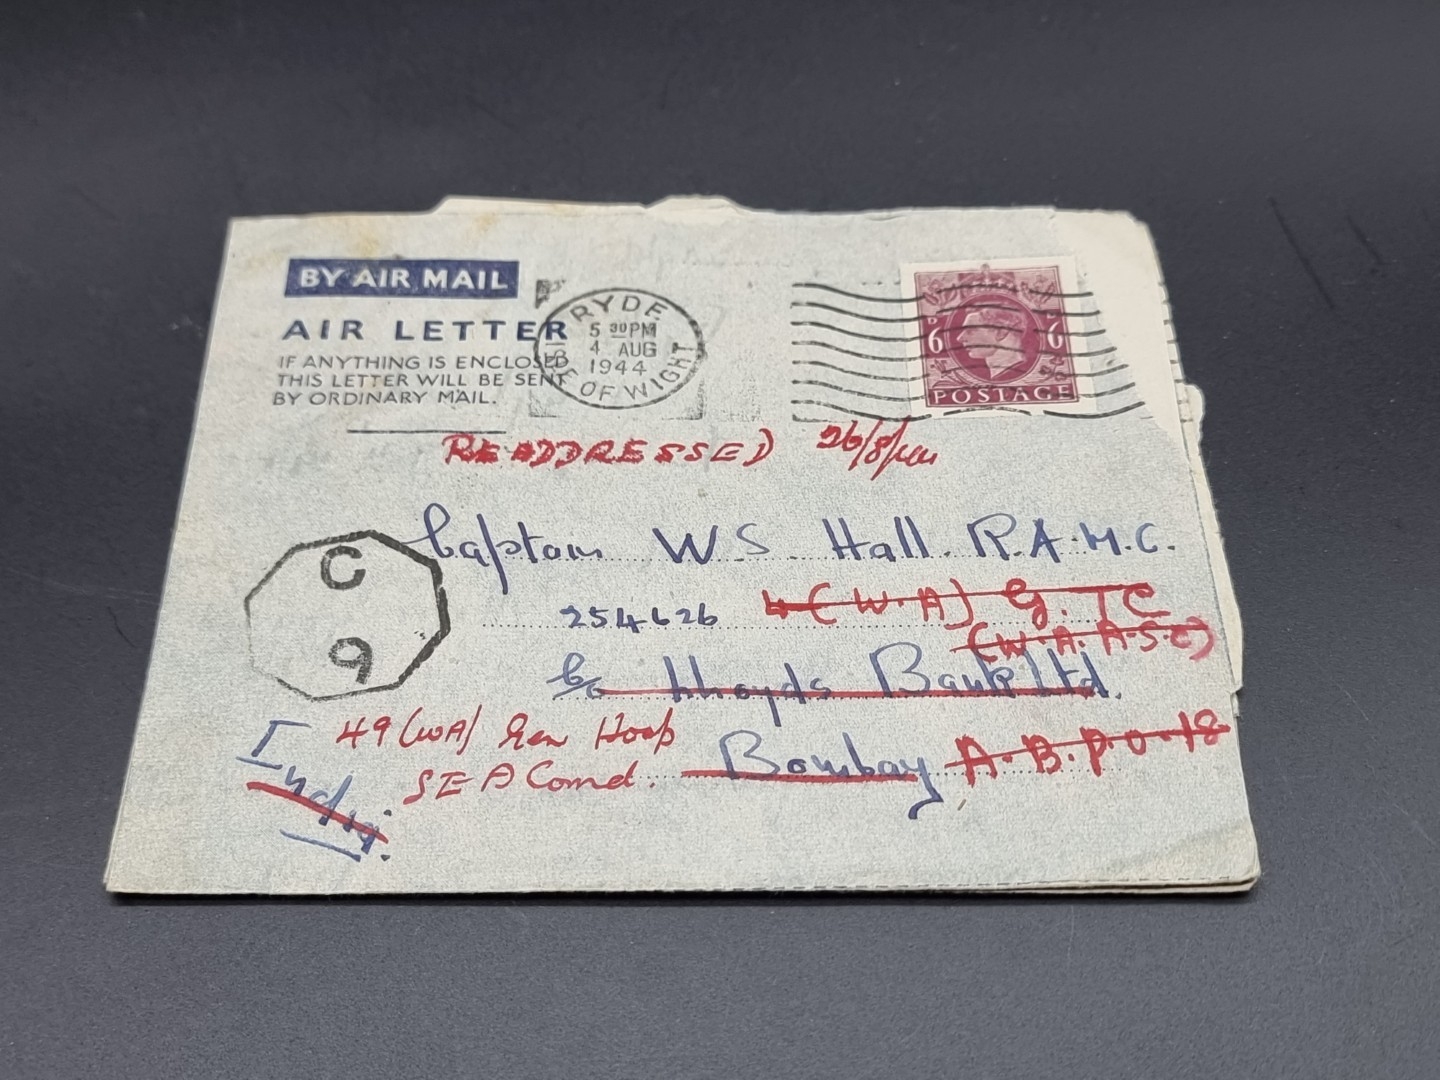 BY AIR MAIL
AIR LETTER
IF ANYTHING IS ENCLOSED
THIS LETTER WILL BE SENT
BY ORDINARY MAIL.
RYDE
5 30 PM
4 AUG
1944
ISLE OF WIGHT
6D 6D
POSTAGE
READDRESSED 26/8/44
Captain W S Hall. R.A.M.C.
254626 4 (W.A) G. TC
(W.A.A.S.C)
C/o Lloyds Bank Ltd.
Bombay A.B.P.O. 18
India.
49 (WA) Gen Hosp
SEA Comd.
C
9